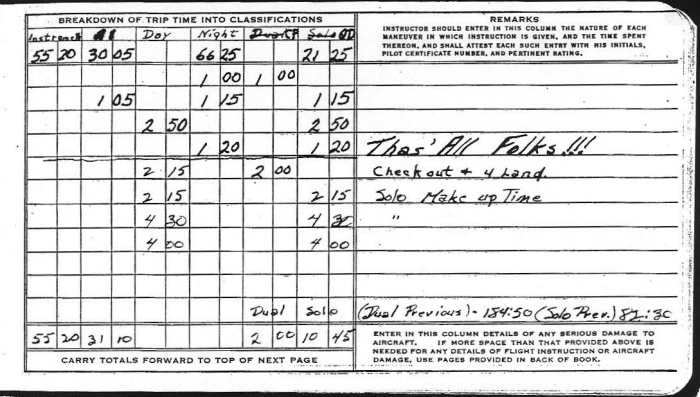 BREAKDOWN OF TRIP TIME INTO CLASSIFICATIONS
REMARKS
INSTRUCTOR SHOULD ENTER IN THIS COLUMN THE NATURE OF EACH
MANEUVER IN WHICH INSTRUCTION IS GIVEN, AND THE TIME SPENT
THEREON, AND SHALL ATTEST EACH SUCH ENTRY WITH HIS INITIALS,
PILOT CERTIFICATE NUMBER, AND PERTINENT RATING.
Day Night Solo
55 20 30 05 66 25 21 25
1 00 1 00
1 05 1 15 1 15
2 50 2 50
1 20 1 20 Thas' All Folks!!!
2 15 2 00 Check out + 4 Land.
2 15 2 15 Solo Make up Time
4 30 4 30 "
4 00 4 00
Dual Solo (Dual Previous) - 184:50 (Solo Prev.) 82:30
55 20 31 10 2 00 10 45
ENTER IN THIS COLUMN DETAILS OF ANY SERIOUS DAMAGE TO
AIRCRAFT. IF MORE SPACE THAN THAT PROVIDED ABOVE IS
NEEDED FOR ANY DETAILS OF FLIGHT INSTRUCTION OR AIRCRAFT
DAMAGE, USE PAGES PROVIDED IN BACK OF BOOK.
CARRY TOTALS FORWARD TO TOP OF NEXT PAGE